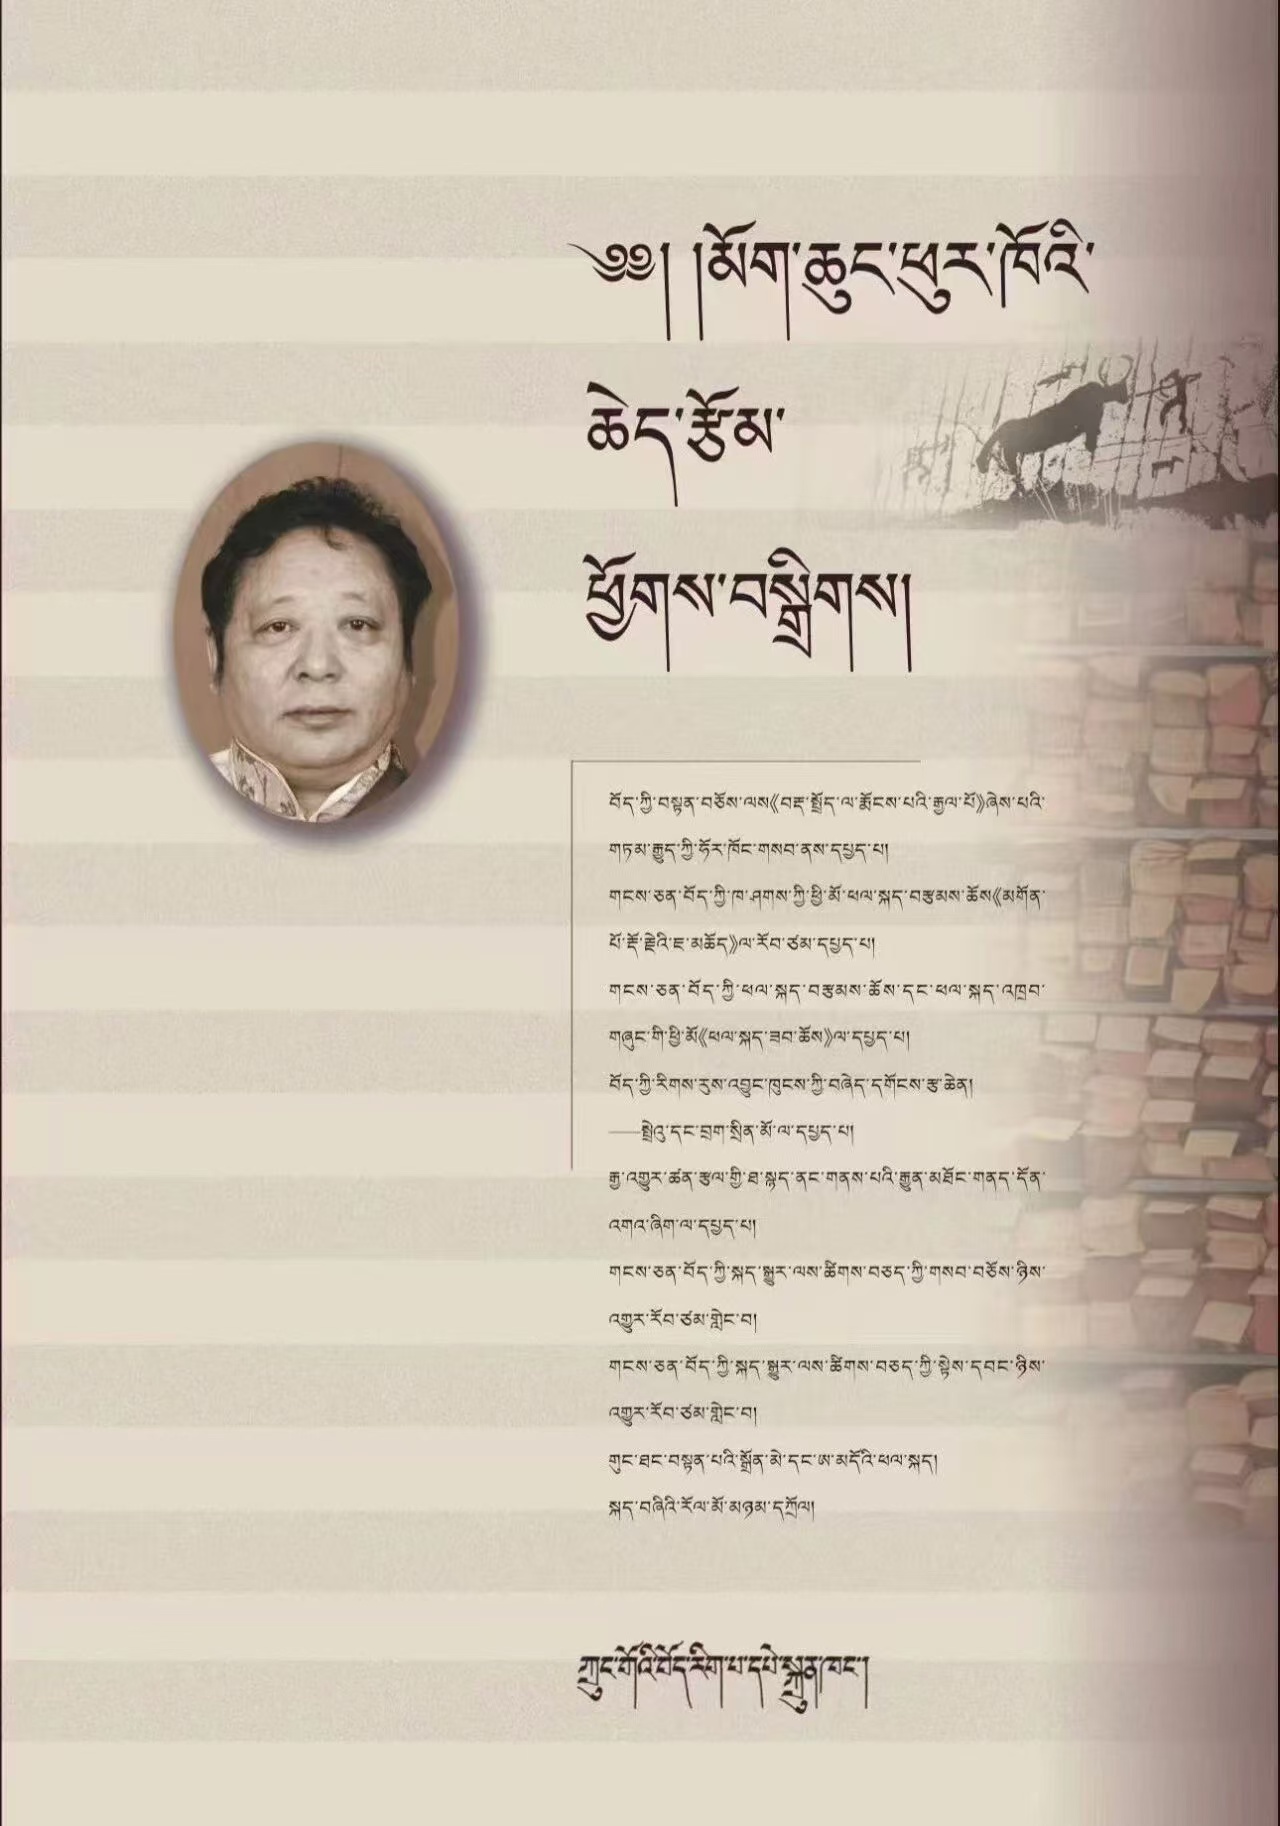 ༄༅། །མོག་ཆུང་ཕུར་ཁོའི་
ཆེད་རྩོམ་
ཕྱོགས་བསྒྲིགས།
བོད་ཀྱི་བསྟན་བཅོས་ལས《བརྡ་སྤྲོད་ལ་རྨོངས་པའི་རྒྱལ་པོ》ཞེས་པའི་
གཏམ་རྒྱུད་ཀྱི་ཧོར་ཁོང་གསབ་ནས་དཔྱད་པ།
གངས་ཅན་བོད་ཀྱི་ཁ་ཤགས་ཀྱི་ཕྱི་མོ་ཕལ་སྐད་བརྩམས་ཆོས《མགོན་
པོ་རྡོ་རྗེའི་ཇ་མཆོད》ལ་རོབ་ཙམ་དཔྱད་པ།
གངས་ཅན་བོད་ཀྱི་ཕལ་སྐད་བརྩམས་ཆོས་དང་ཕལ་སྐད་འཁྲབ་
གཞུང་གི་ཕྱི་མོ《ཕལ་སྐད་ཟབ་ཆོས》ལ་དཔྱད་པ།
བོད་ཀྱི་རིགས་རུས་འབྱུང་ཁུངས་ཀྱི་བཞེད་དགོངས་རྩ་ཆེན།
——སྤྲེའུ་དང་བྲག་སྲིན་མོ་ལ་དཔྱད་པ།
རྒྱ་འགྱུར་ཚན་རྩལ་གྱི་ཐ་སྙད་ནང་གནས་པའི་རྒྱུན་མཐོང་གནད་དོན་
འགའ་ཞིག་ལ་དཔྱད་པ།
གངས་ཅན་བོད་ཀྱི་སྐད་སྒྱུར་ལས་ཚིགས་བཅད་ཀྱི་གསབ་བཅོས་ཉིས་
འགྱུར་རོབ་ཙམ་གླེང་བ།
གངས་ཅན་བོད་ཀྱི་སྐད་སྒྱུར་ལས་ཚིགས་བཅད་ཀྱི་སྟེས་དབང་ཉིས་
འགྱུར་རོབ་ཙམ་གླེང་བ།
གུང་ཐང་བསྟན་པའི་སྒྲོན་མེ་དང་ཨ་མདོའི་ཕལ་སྐད།
སྐད་བཞིའི་རོལ་མོ་མཉམ་དཀྲོལ།
ཀྲུང་གོའི་བོད་རིག་པ་དཔེ་སྐྲུན་ཁང་།